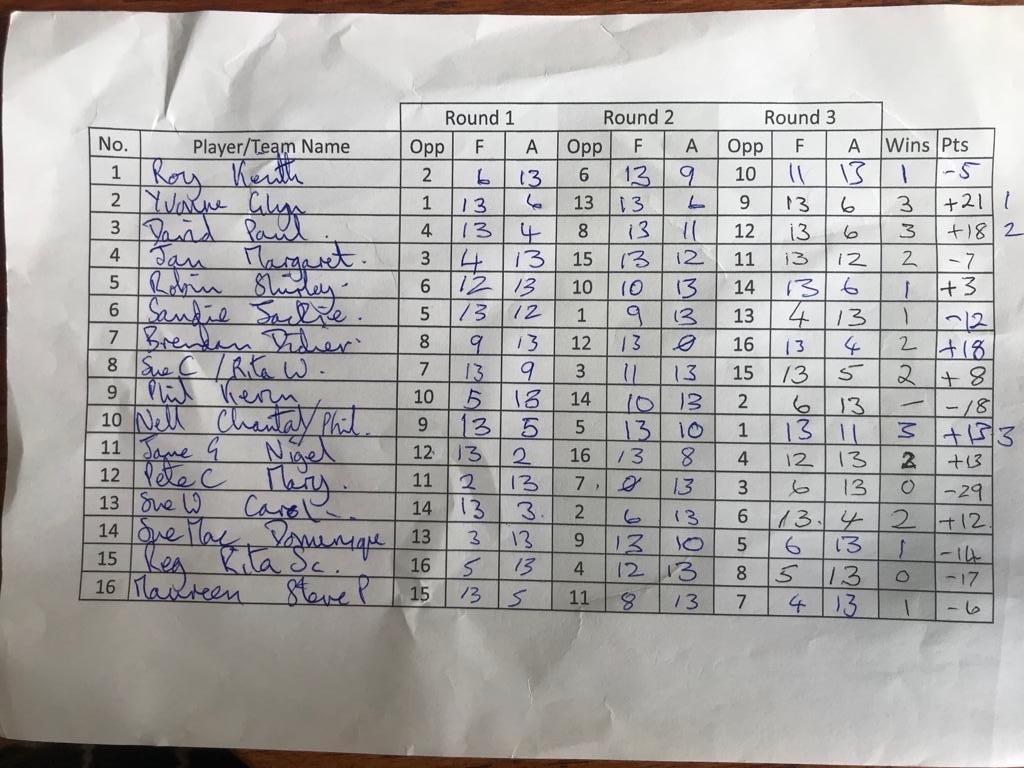 Round 1 Round 2 Round 3
No. Player/Team Name Opp F A Opp F A Opp F A Wins Pts
1 Roy Keith 2 6 13 6 13 9 10 11 13 1 -5
2 Yvonne Glyn 1 13 6 13 13 6 9 13 6 3 +21 1
3 David Paul. 4 13 4 8 13 11 12 13 6 3 +18 2
4 Jan Margaret. 3 4 13 15 13 12 11 13 12 2 -7
5 Robin Shirley 6 12 13 10 10 13 14 13 6 1 +3
6 Sandie Jackie. 5 13 12 1 9 13 13 4 13 1 -12
7 Brendan Didier 8 9 13 12 13 0 16 13 4 2 +18
8 Sue C / Rita W. 7 13 9 3 11 13 15 13 5 2 +8
9 Phil Kevin 10 5 13 14 10 13 2 6 13 - -18
10 Nell Chantal/Phil. 9 13 5 5 13 10 1 13 11 3 +13 3
11 Jane G Nigel 12 13 2 16 13 8 4 12 13 2 +13
12 Pete C Mary. 11 2 13 7 0 13 3 6 13 0 -29
13 Sue W Carol 14 13 3. 2 6 13 6 13. 4 2 +12.
14 Sue Mac Dominique 13 3 13 9 13 10 5 6 13 1 -14
15 Reg Rita Sc. 16 5 13 4 12 13 8 5 13 0 -17
16 Maureen Steve P 15 13 5 11 8 13 7 4 13 1 -6